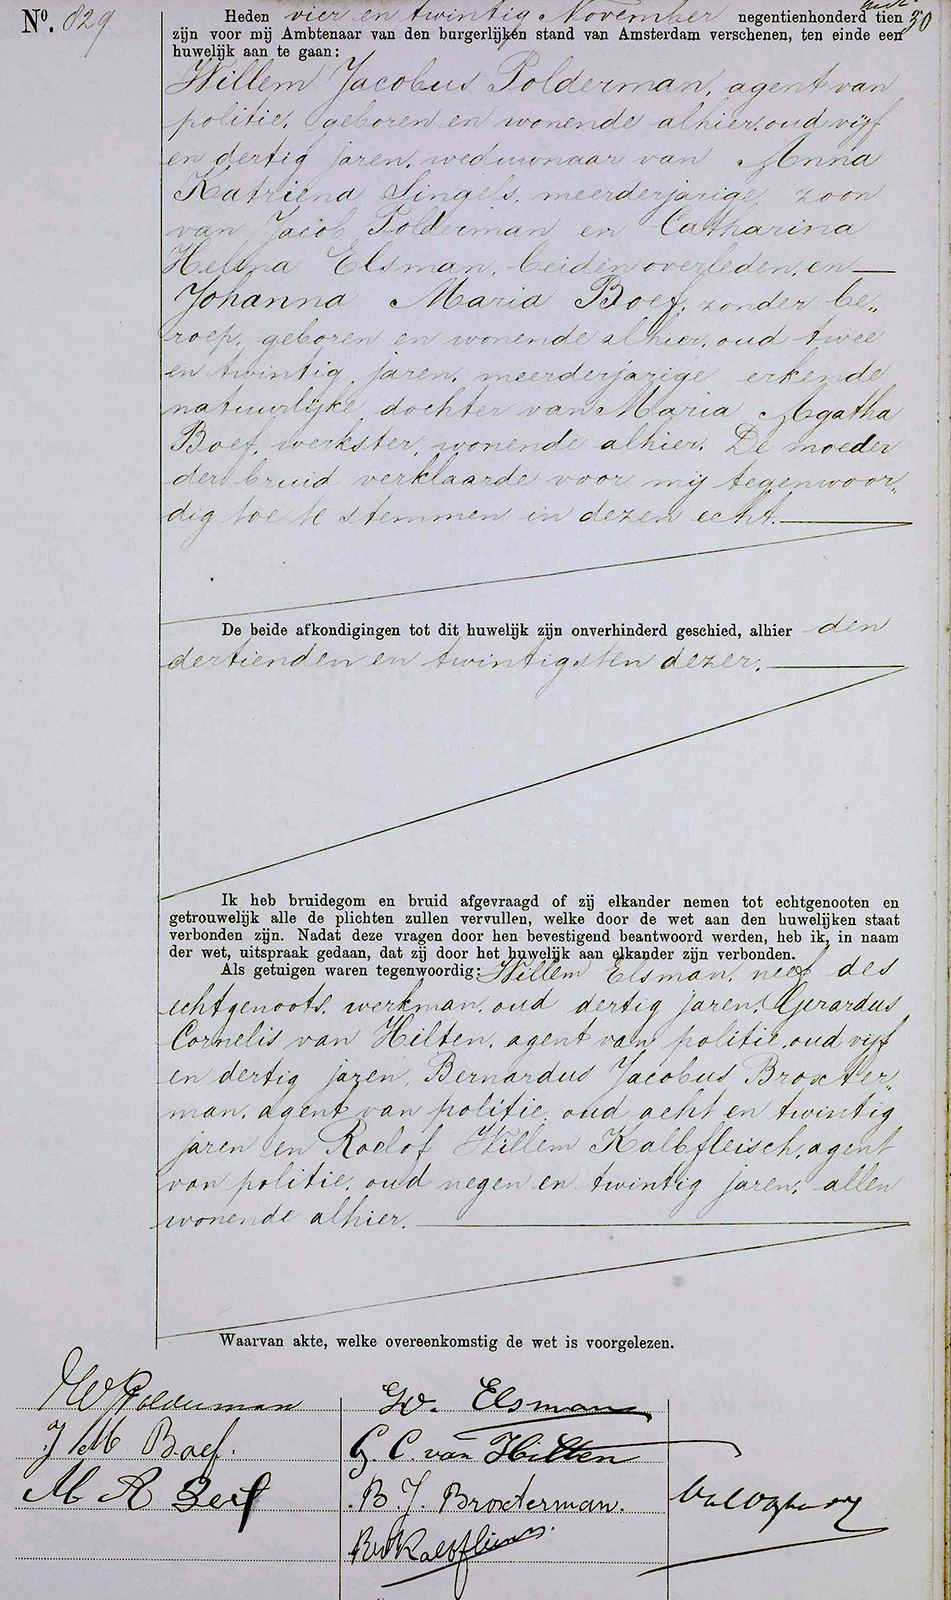 No. 829
30
Heden vier en twintig November negentienhonderd tien
zijn voor mij Ambtenaar van den burgerlijken stand van Amsterdam verschenen, ten einde een
huwelijk aan te gaan:
Willem Jacobus Polderman, agent van
politie, geboren en wonende alhier, oud vijf
en dertig jaren, weduwnaar van Anna
Katriena Singels, meerderjarige zoon
van Jacob Polderman en Catharina
Helena Elsman, beiden overleden, en
Johanna Maria Boef, zonder be„
roep, geboren en wonende alhier, oud twee
en twintig jaren, meerderjarige erkende
natuurlijke dochter van Maria Agatha
Boef, werkster, wonende alhier. De moeder
der bruid verklaarde voor mij tegenwoor„
dig toe te stemmen in dezen echt.
De beide afkondigingen tot dit huwelijk zijn onverhinderd geschied, alhier den
dertienden en twintigsten dezer.
Ik heb bruidegom en bruid afgevraagd of zij elkander nemen tot echtgenooten en
getrouwelijk alle de plichten zullen vervullen, welke door de wet aan den huwelijken staat
verbonden zijn. Nadat deze vragen door hen bevestigend beantwoord werden, heb ik, in naam
der wet, uitspraak gedaan, dat zij door het huwelijk aan elkander zijn verbonden.
Als getuigen waren tegenwoordig: Willem Elsman, neef des
echtgenoots, werkman, oud dertig jaren, Gerardus
Cornelis van Hilten, agent van politie, oud vijf
en dertig jaren, Bernardus Jacobus Broxter„
man, agent van politie, oud acht en twintig
jaren en Roelof Willem Kalbfleisch, agent
van politie, oud negen en twintig jaren, allen
wonende alhier.
Waarvan akte, welke overeenkomstig de wet is voorgelezen.
WJ Polderman
J M Boef.
M A Boef
W. Elsman
G C. van Hilten
B. J. Broxterman.
RW Kalbfleisch